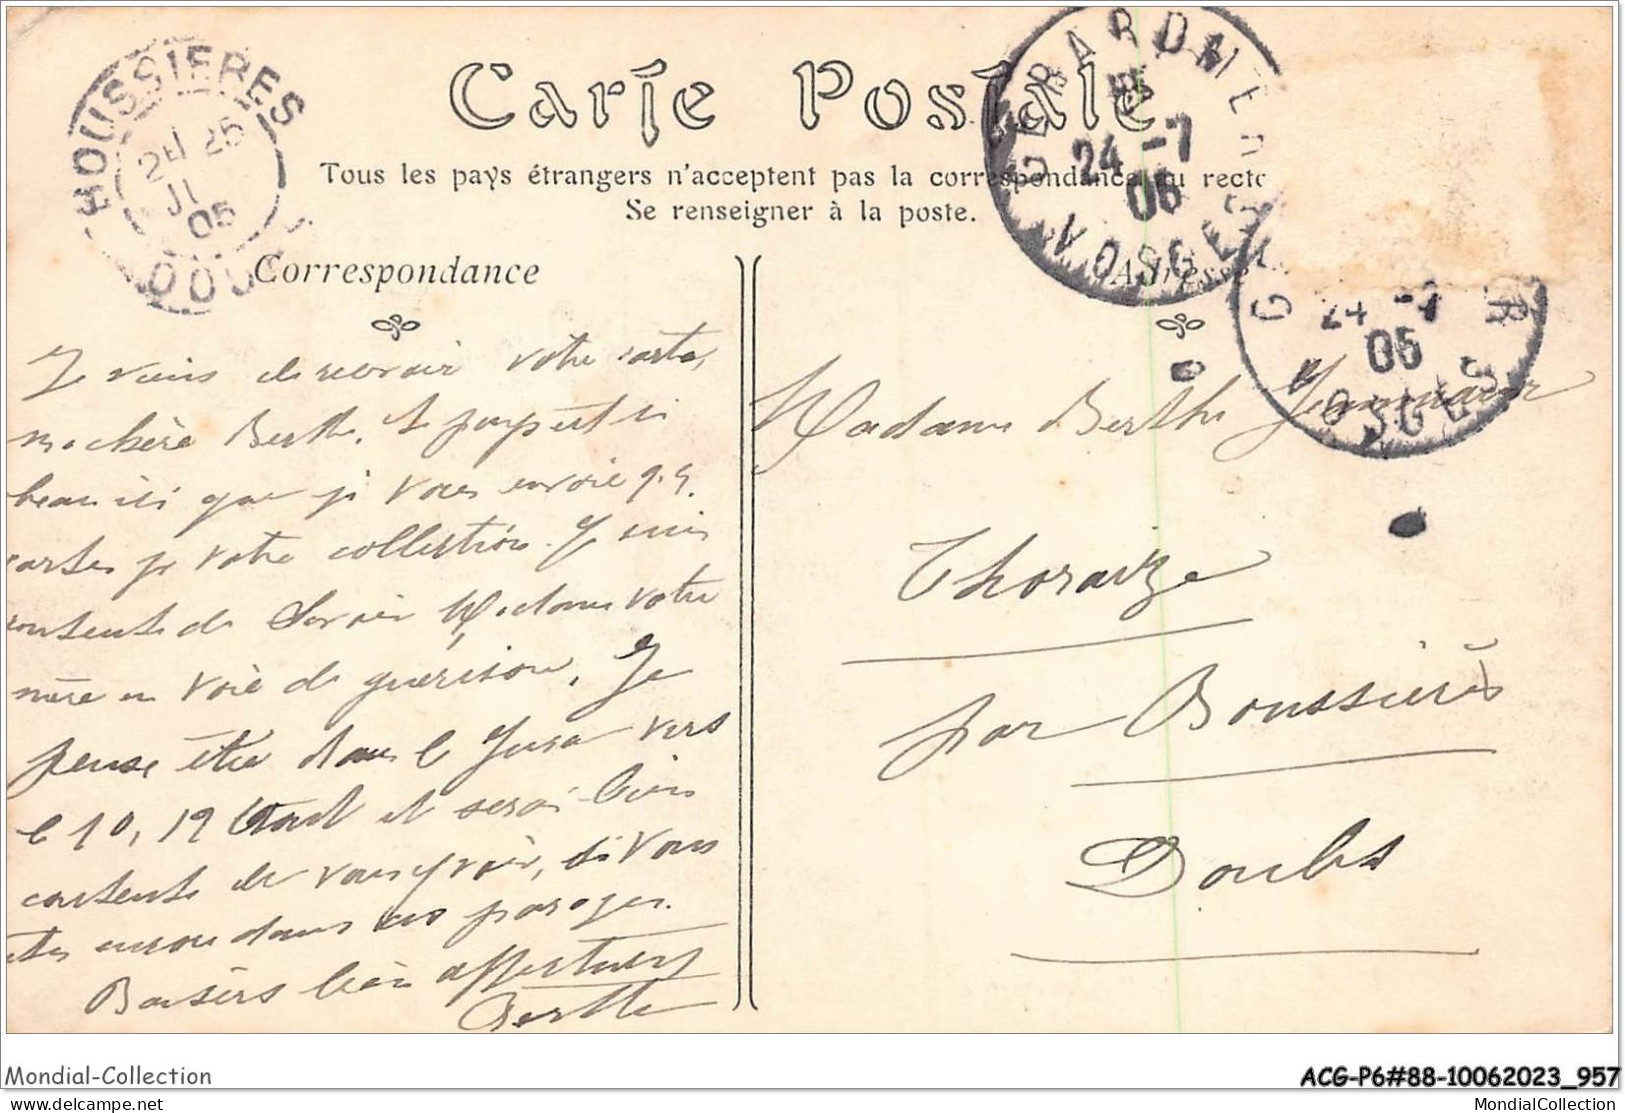 Carte Postale
Tous les pays étrangers n'acceptent pas la correspondance au recto
Se renseigner à la poste.
BOUSSIERES
25
JL
05
DOUBS
GERARDMER
24 -7
05
VOSGES
24 -7
05
VOSGES
Correspondance
Je viens de recevoir votre carte,
ma chère Berthe. Le pays est si
beau ici que je vous envoie q.q.
cartes pr votre collection. Je suis
contente de savoir Madame votre
mère en voie de guérison. Je
pense être dans le Jura vers
le 10, 12 Août et serai bien
contente de vous y voir, si vous
êtes encore dans ces parages.
Baisers bien affectueux
Berthe
Adresse
Madame Berthe
Thoraize
par Boussières
Doubs
Mondial-Collection
ACG-P6#88-10062023_957
delcampe.net
MondialCollection